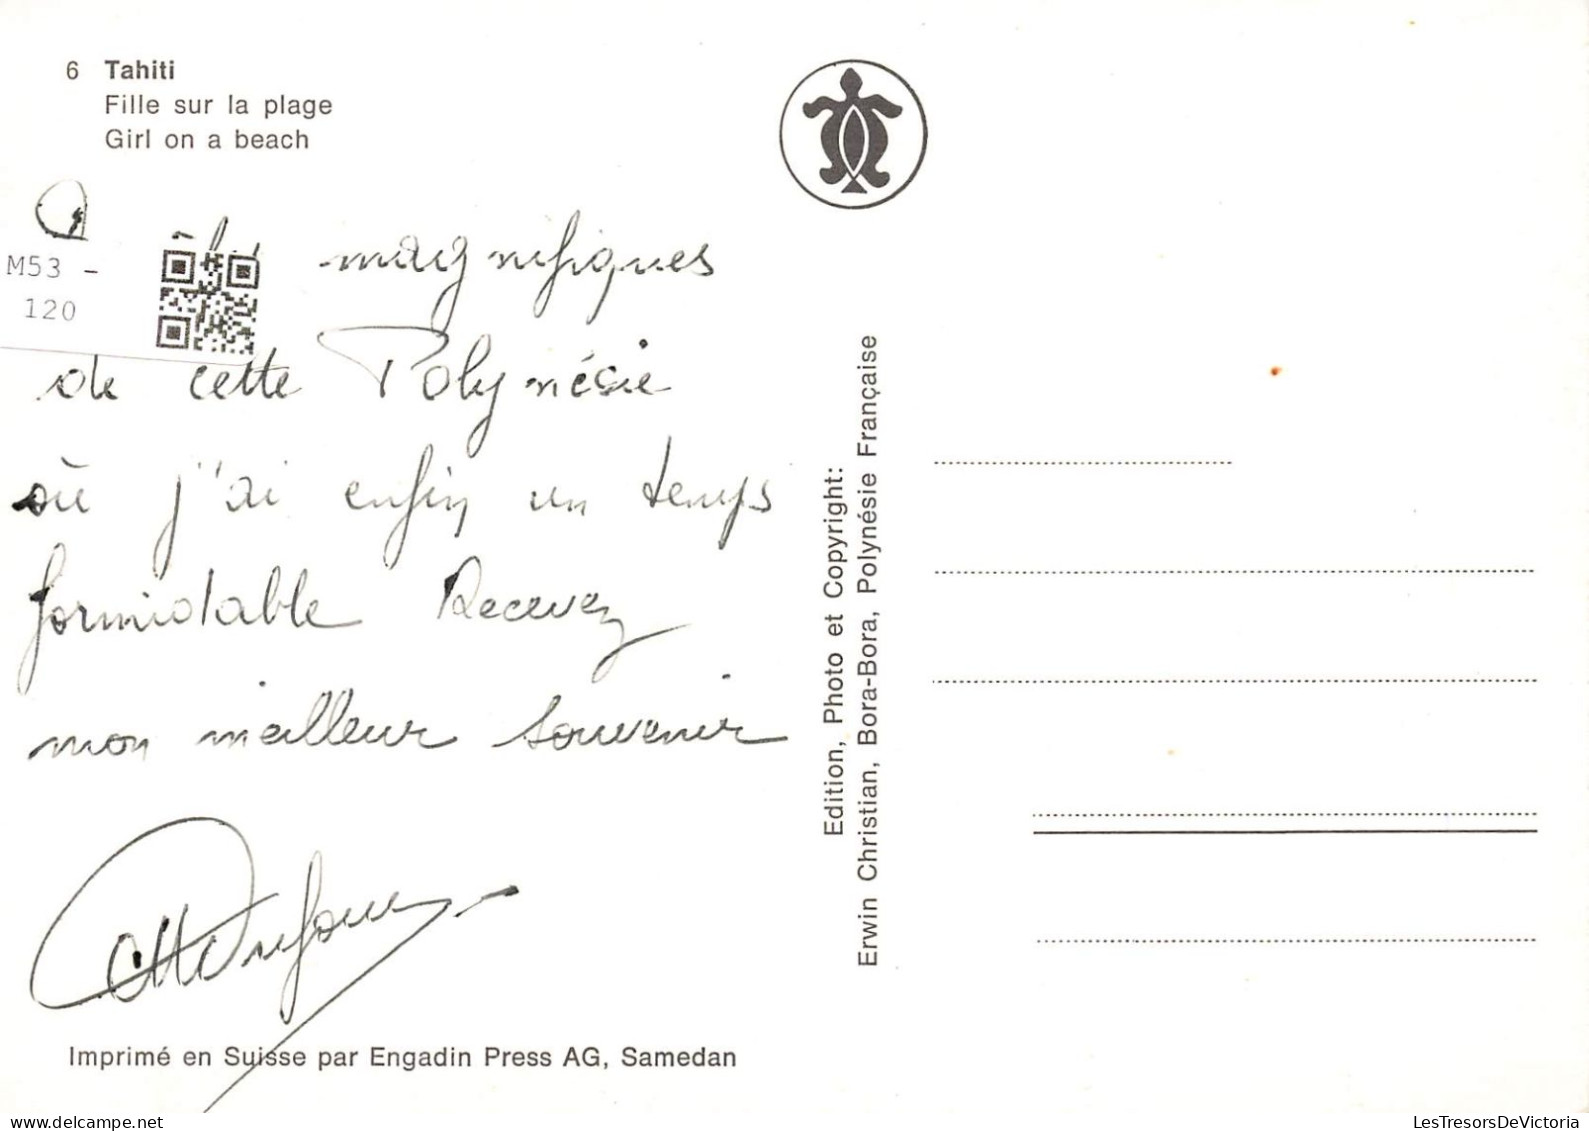 6 Tahiti
Fille sur la plage
Girl on a beach
M53 -
120
magnifiques
de cette Polynésie
où j'ai enfin un temps
formidable Recevez
mon meilleur souvenir
Imprimé en Suisse par Engadin Press AG, Samedan
Edition, Photo et Copyright:
Erwin Christian, Bora-Bora, Polynésie Française
LesTresorsDeVictoria